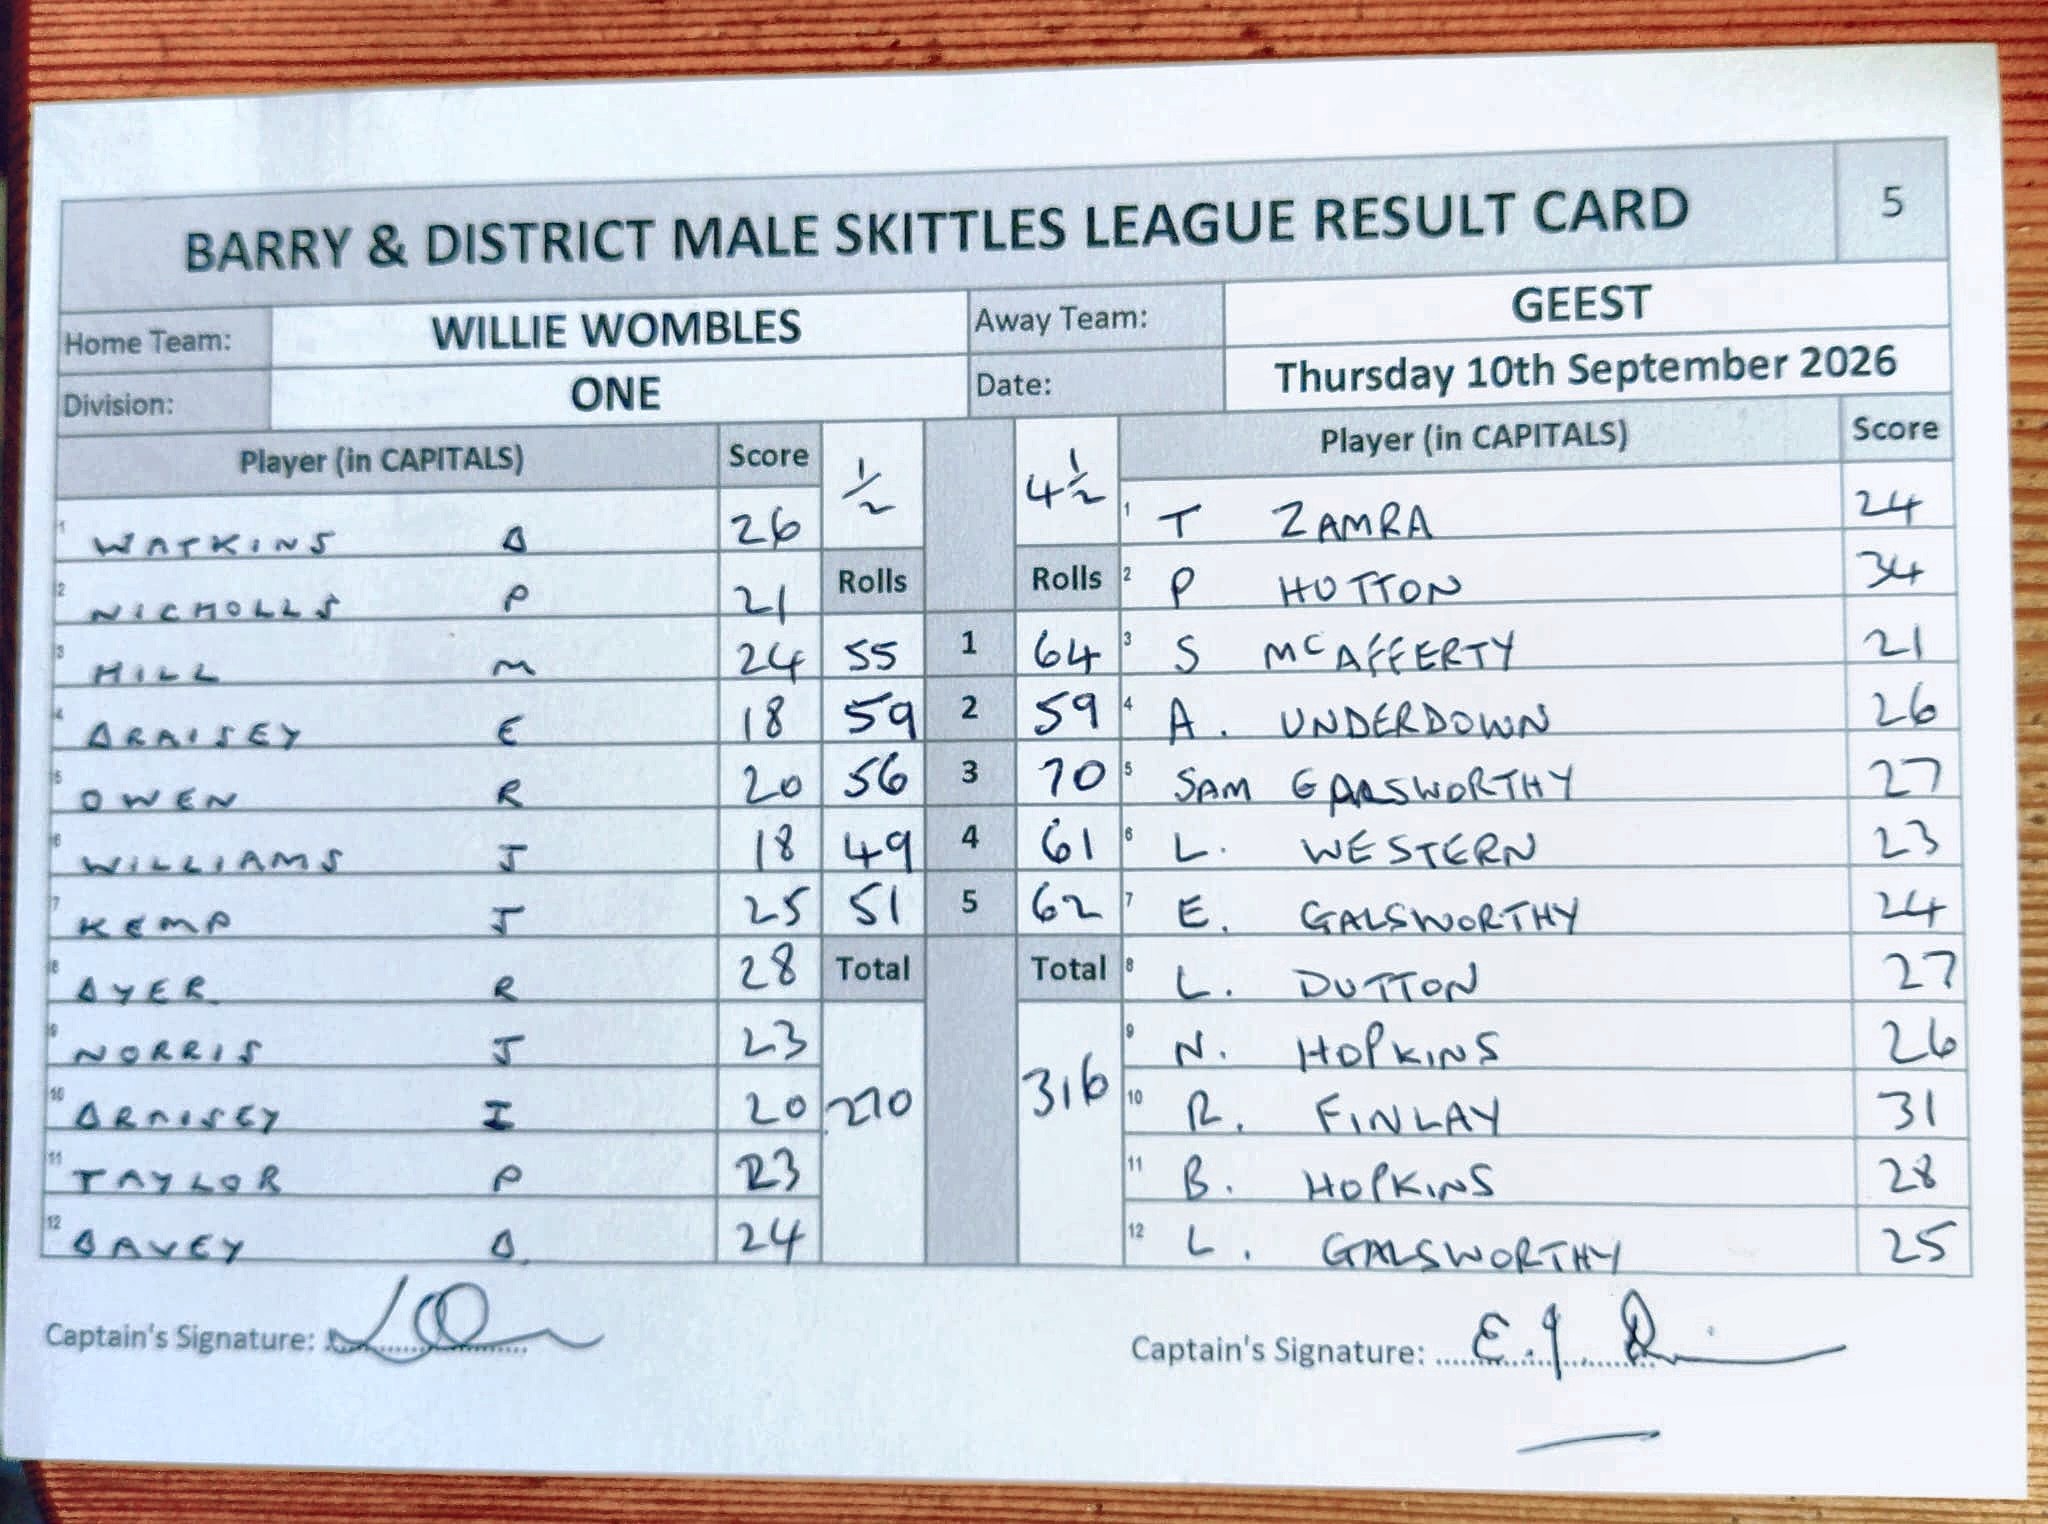 BARRY & DISTRICT MALE SKITTLES LEAGUE RESULT CARD 5
Home Team: WILLIE WOMBLES Away Team: GEEST
Division: ONE Date: Thursday 10th September 2026
Player (in CAPITALS) Score 1/2 4 1/2 Player (in CAPITALS) Score
1 WATKINS D 26 1 T ZAMRA 24
2 NICHOLLS P 21 Rolls Rolls 2 P HUTTON 34
3 HILL M 24 55 1 64 3 S McAFFERTY 21
4 DRAISEY E 18 59 2 59 4 A. UNDERDOWN 26
5 OWEN R 20 56 3 70 5 SAM GALSWORTHY 27
6 WILLIAMS J 18 49 4 61 6 L. WESTERN 23
7 KEMP J 25 51 5 62 7 E. GALSWORTHY 24
8 DYER R 28 Total Total 8 L. DUTTON 27
9 NORRIS J 23 9 N. HOPKINS 26
10 DRAISEY I 20 270 316 10 R. FINLAY 31
11 TAYLOR P 23 11 B. HOPKINS 28
12 DAVEY D. 24 12 L. GALSWORTHY 25
Captain's Signature: Captain's Signature: E.J